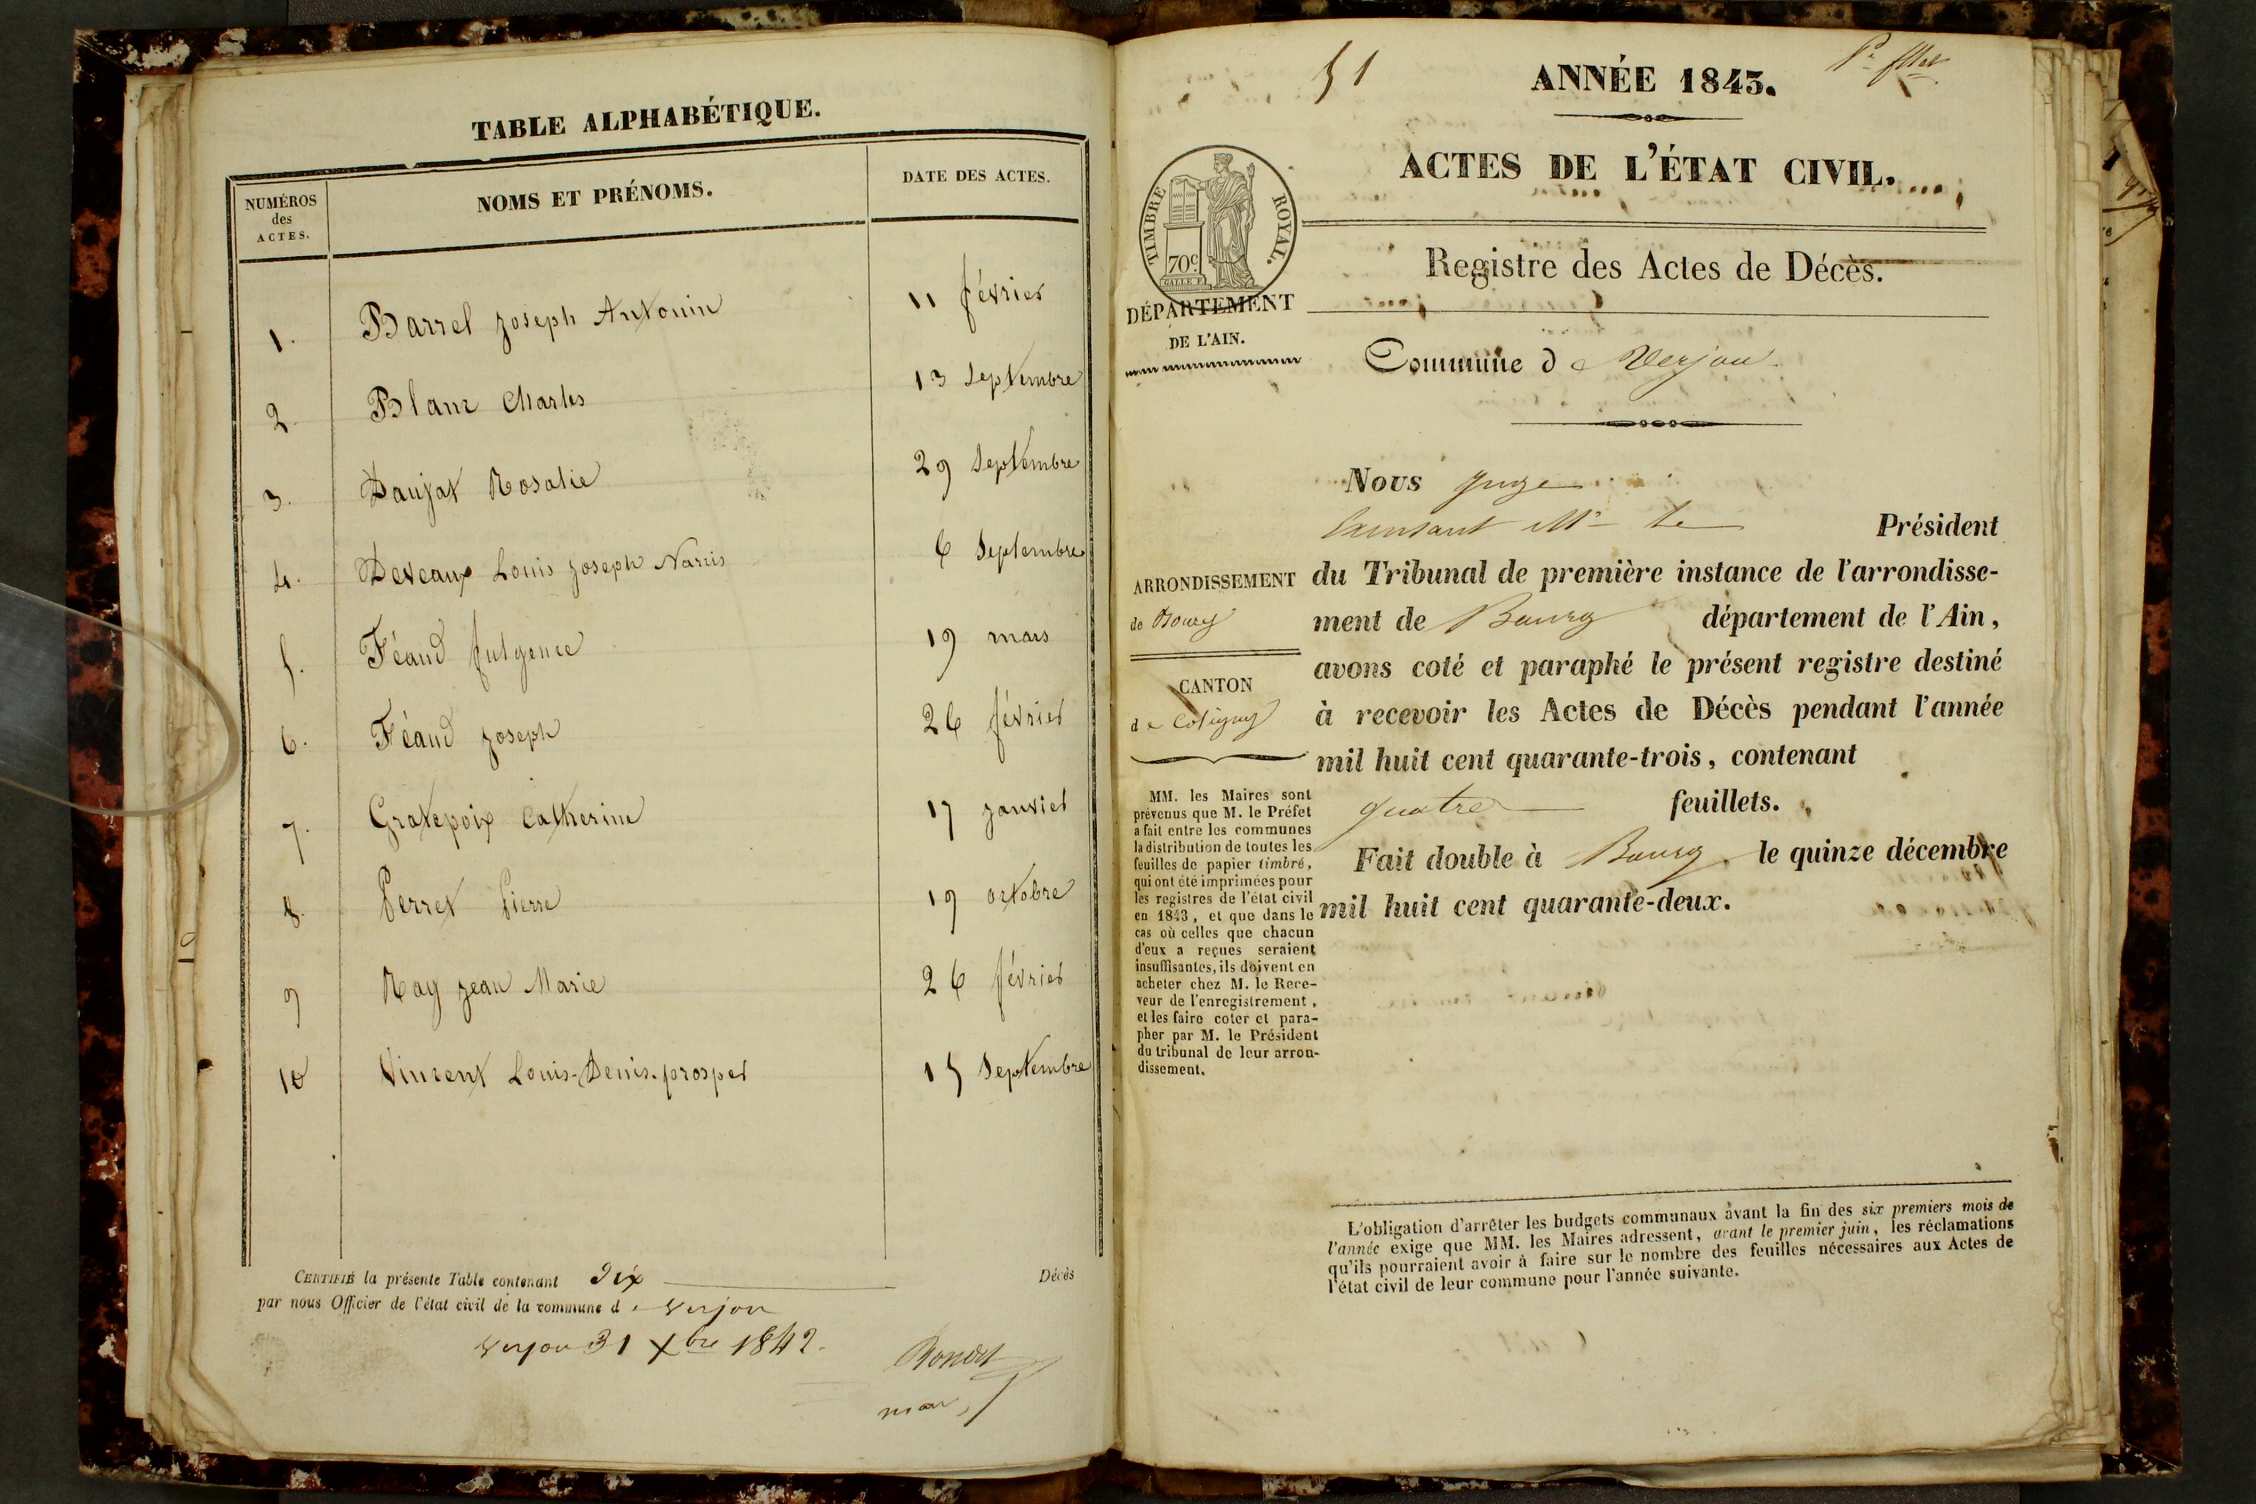 TABLE ALPHABÉTIQUE.
NUMÉROS
des
ACTES.
NOMS ET PRÉNOMS.
DATE DES ACTES.
1. Barrel Joseph Antonin 11 février
2. Blanc Charles 13 septembre
3. Daujat Rosalie 29 septembre
4. Deveaux Louis Joseph Narcis 6 septembre
5. Féaud fulgence 19 mars
6. Féaud Joseph 26 février
7. Gratepoix Catherine 17 janvier
8. Perret Pierre 19 octobre
9 Ray Jean Marie 26 février
10 Vincent Louis-Denis-prosper 15 septembre
CERTIFIÉ la présente Table contenant Dix Décès
par nous Officier de l'état civil de la commune de verjon
verjon 31 Xbre 1842.
51
ANNÉE 1843.
ACTES DE L'ÉTAT CIVIL.
TIMBRE ROYAL.
70c
GALLE F.
Registre des Actes de Décès.
DÉPARTEMENT
DE L'AIN.
Commune de Verjon
Nous Juge
Président
du Tribunal de première instance de l'arrondisse-
ment de Bourg département de l'Ain,
avons coté et paraphé le présent registre destiné
à recevoir les Actes de Décès pendant l'année
mil huit cent quarante-trois, contenant
quatre feuillets.
Fait double à Bourg le quinze décembre
mil huit cent quarante-deux.
ARRONDISSEMENT
de Bourg
CANTON
de Coligny
MM. les Maires sont
prévenus que M. le Préfet
a fait entre les communes
la distribution de toutes les
feuilles de papier timbré,
qui ont été imprimées pour
les registres de l'état civil
en 1843, et que dans le
cas où celles que chacun
d'eux a reçues seraient
insuffisantes, ils doivent en
acheter chez M. le Rece-
veur de l'enregistrement,
et les faire coter et para-
pher par M. le Président
du tribunal de leur arron-
dissement.
L'obligation d'arrêter les budgets communaux avant la fin des six premiers mois de
l'année exige que MM. les Maires adressent, avant le premier juin, les réclamations
qu'ils pourraient avoir à faire sur le nombre des feuilles nécessaires aux Actes de
l'état civil de leur commune pour l'année suivante.